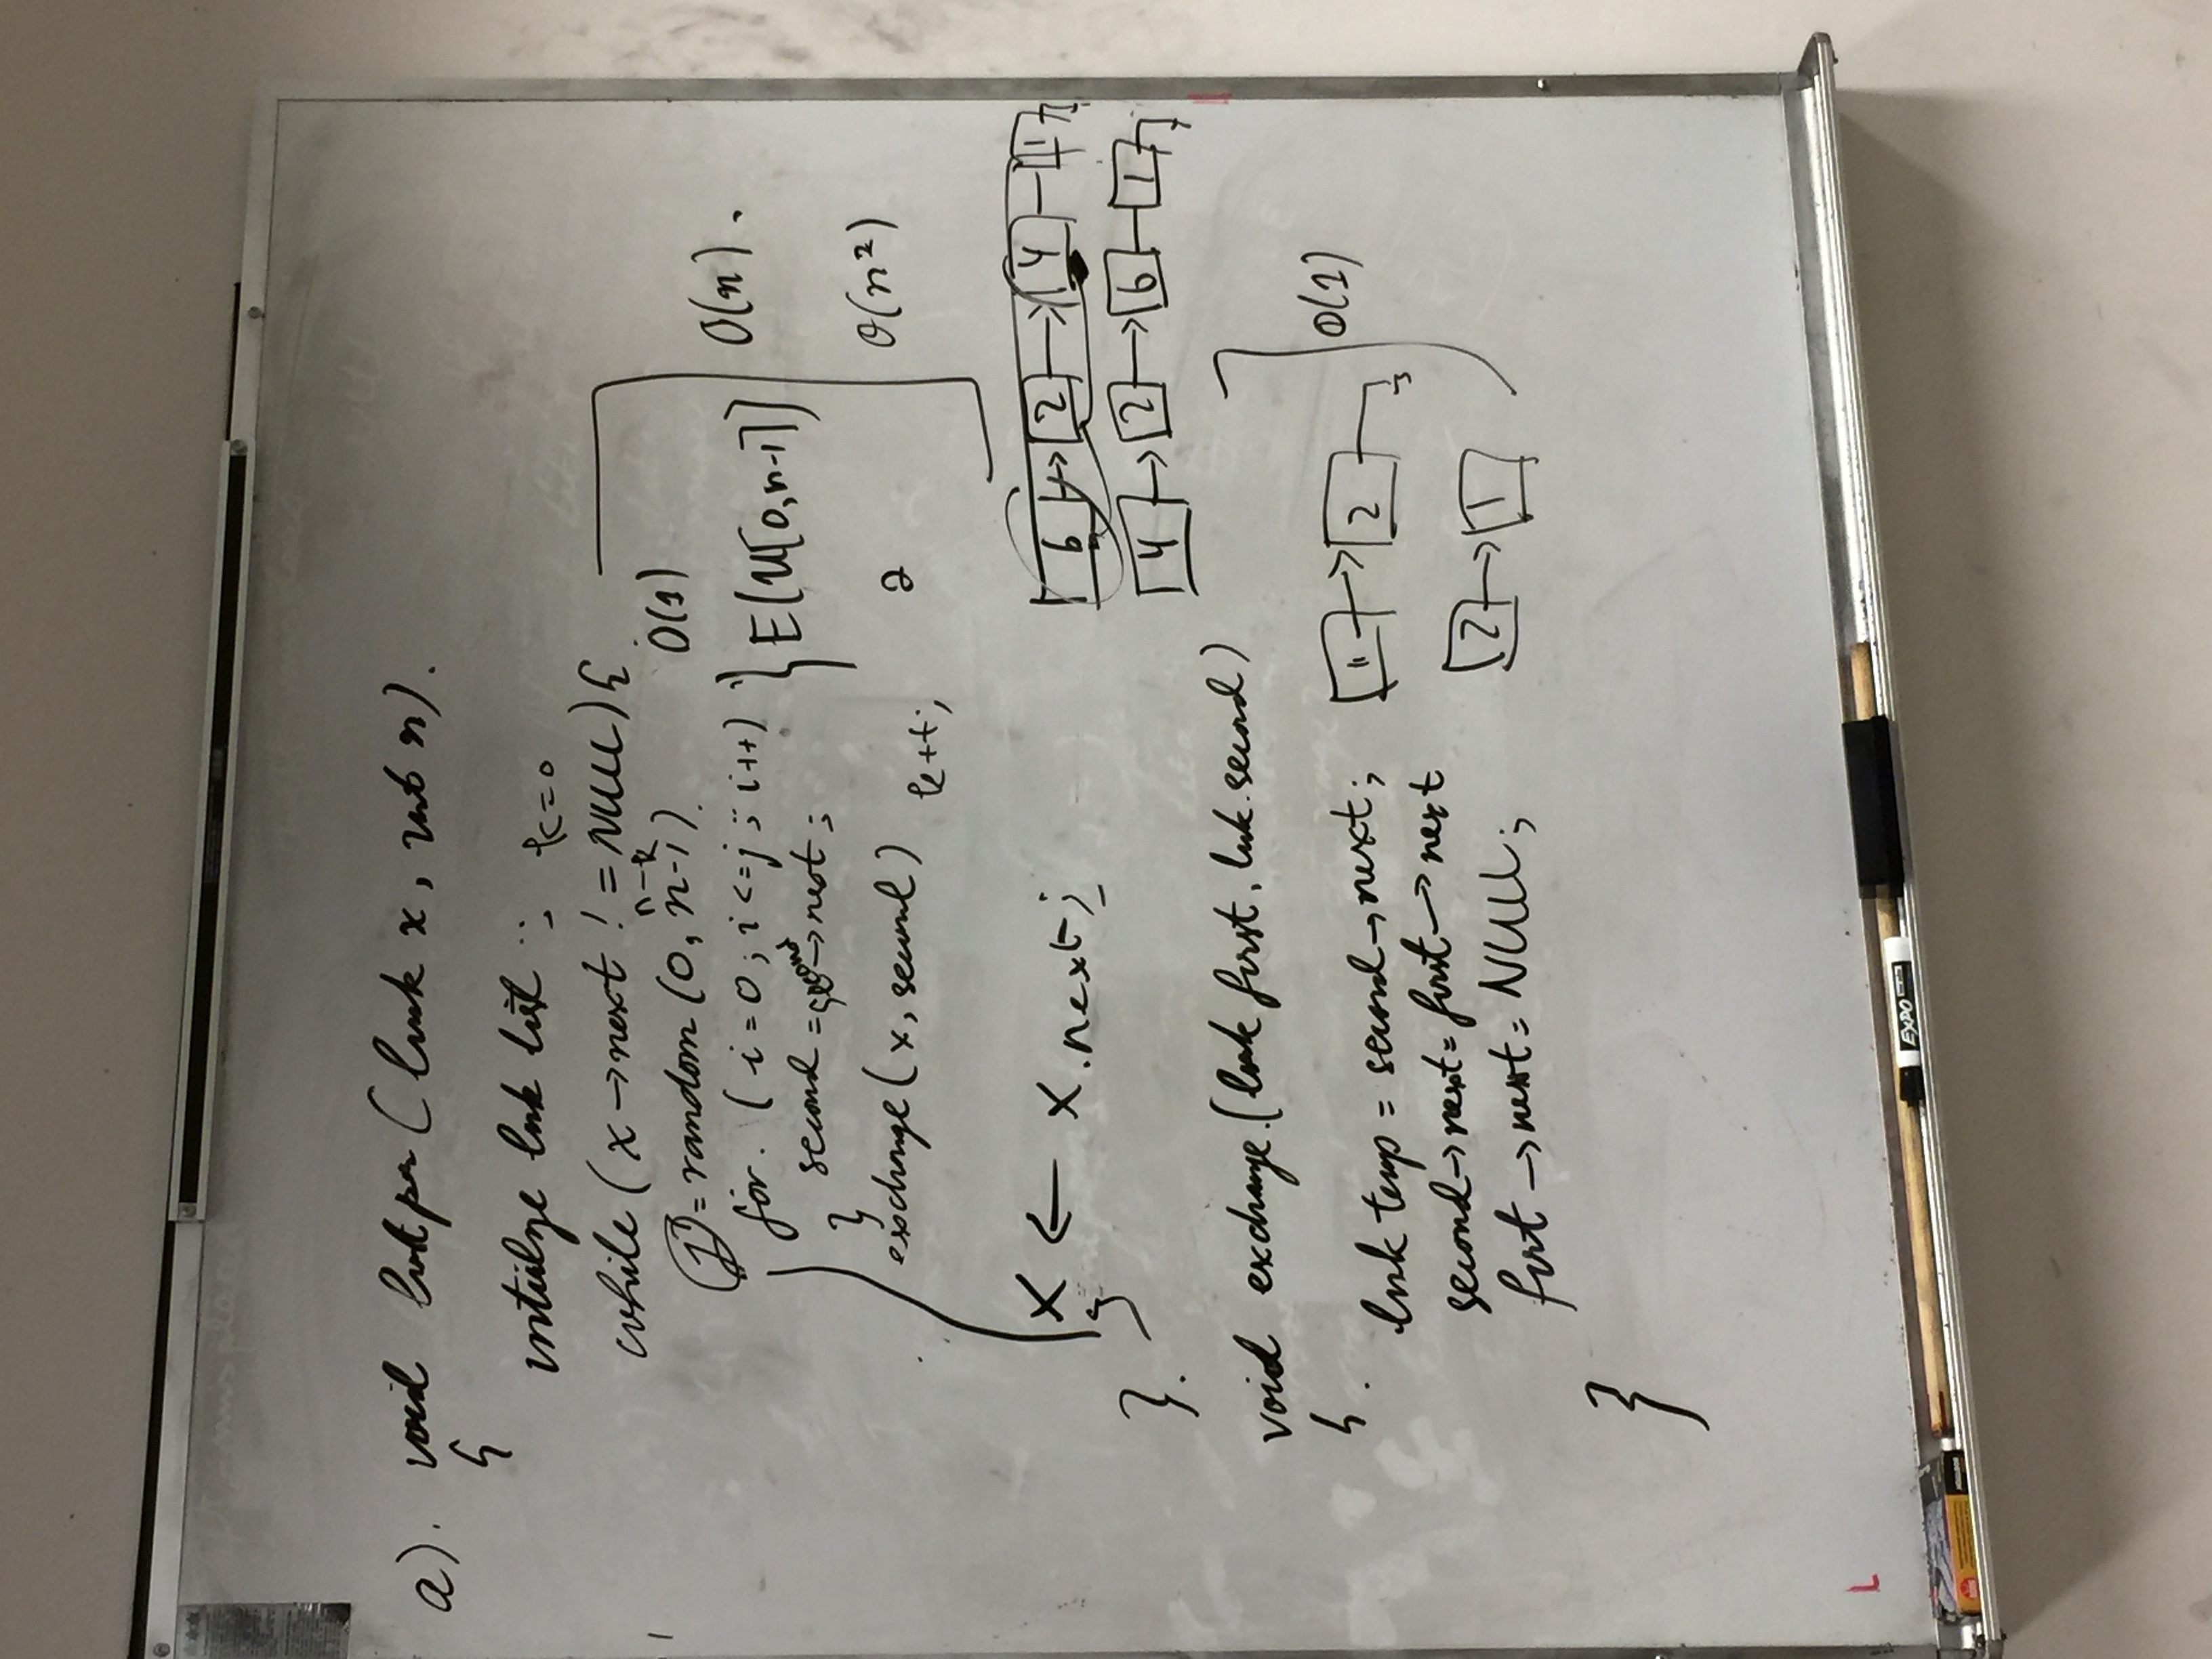 a). void listper (link x, int n).
{
intialze link list ; k=0
while (x→next != NULL) {
n-k
j = random (0, n-1). O(1)
for. (i=0; i<=j; i++) } E(U[0,n-1]) O(n).
second = second→next;
}
exchange (x, second) k++; 2 O(n²)
x ← x.next;
}
}.
6 → 2 → 4 — 1
4 → 2 → 6 — 1
void exchange. (link first, link second)
{.
link temp = second→next; 1 → 2 O(1)
second→next = first→next
2 → 1
first→next = NULL;
}
L
EXPO